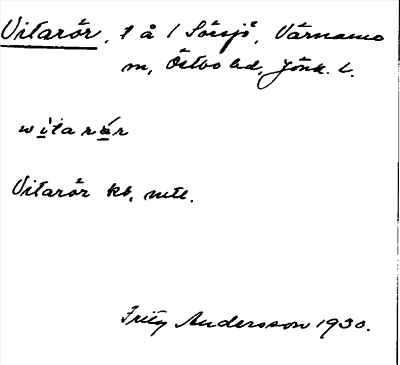 Vitarör, 1 å 1 Sörsjö, Värnamo
m, Östbo hd, Jönk. l.
witarör
Vitarör kb, mtl.
Fritz Andersson 1930.